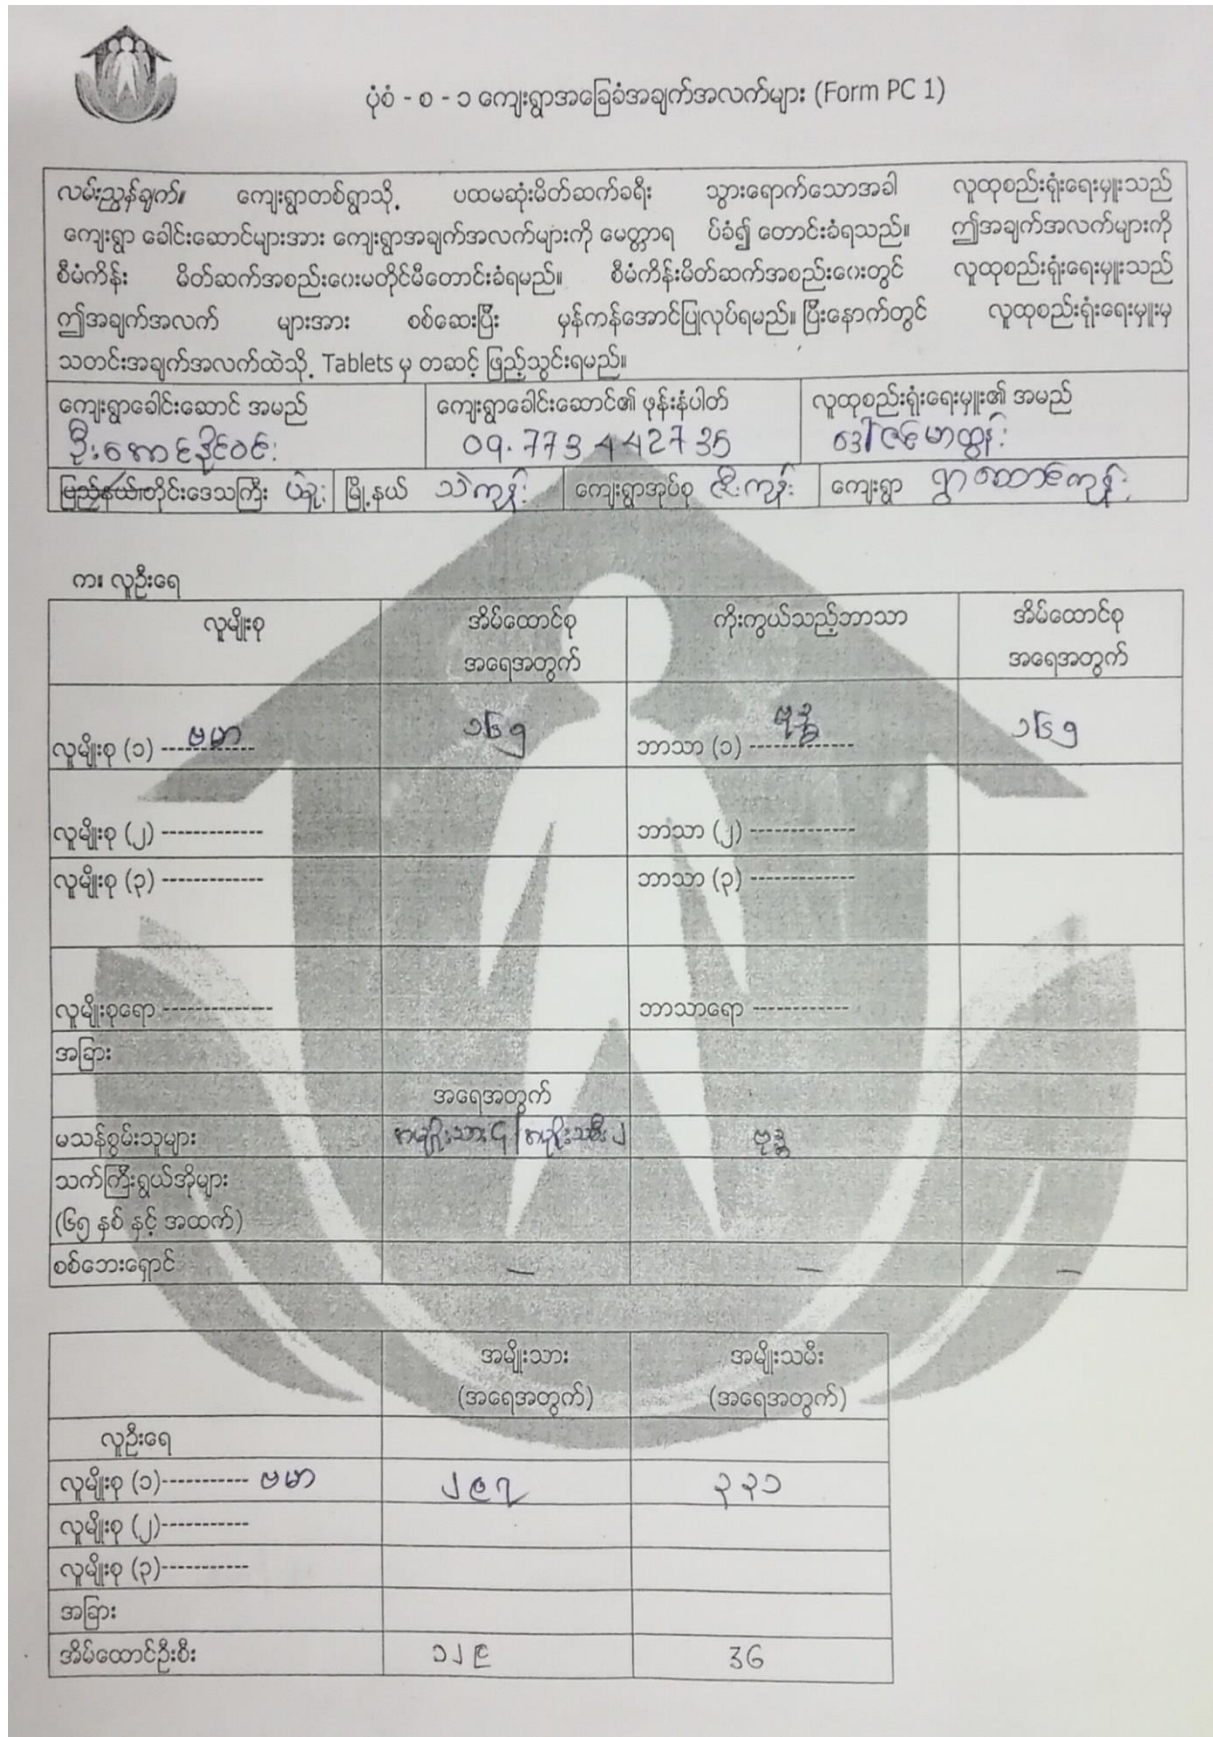 ပုံစံ - စ - ၁ ကျေးရွာအခြေခံအချက်အလက်များ (Form PC 1)
လမ်းညွှန်ချက်။ ကျေးရွာတစ်ရွာသို့ ပထမဆုံးမိတ်ဆက်ခရီး သွားရောက်သောအခါ လူထုစည်းရုံးရေးမှူးသည်
ကျေးရွာ ခေါင်းဆောင်များအား ကျေးရွာအချက်အလက်များကို မေတ္တာရ ပ်ခံ၍ တောင်းခံရသည်။ ဤအချက်အလက်များကို
စီမံကိန်း မိတ်ဆက်အစည်းဝေးမတိုင်မီတောင်းခံရမည်။ စီမံကိန်းမိတ်ဆက်အစည်းဝေးတွင် လူထုစည်းရုံးရေးမှူးသည်
ဤအချက်အလက် များအား စစ်ဆေးပြီး မှန်ကန်အောင်ပြုလုပ်ရမည်။ ပြီးနောက်တွင် လူထုစည်းရုံးရေးမှူးမှ
သတင်းအချက်အလက်ထဲသို့ Tablets မှ တဆင့် ဖြည့်သွင်းရမည်။
ကျေးရွာခေါင်းဆောင် အမည် ကျေးရွာခေါင်းဆောင်၏ ဖုန်းနံပါတ် လူထုစည်းရုံးရေးမှူး၏ အမည်
ဦးအောင်နိုင်ဝင်း 09.773442735 ဒေါ်ဇင်မာထွန်း
ပြည်နယ်/တိုင်းဒေသကြီး ပဲခူး မြို့နယ် သဲကုန်း ကျေးရွာအုပ်စု ဇီးကုန်း ကျေးရွာ ရွာထောင်ကုန်း
က။ လူဦးရေ
လူမျိုးစု အိမ်ထောင်စု ကိုးကွယ်သည့်ဘာသာ အိမ်ထောင်စု
အရေအတွက် အရေအတွက်
လူမျိုးစု (၁) ----------- ဗမာ ၁၆၅ ဘာသာ (၁) ----------- ဗုဒ္ဓ ၁၆၅
လူမျိုးစု (၂) ----------- ဘာသာ (၂) -----------
လူမျိုးစု (၃) ----------- ဘာသာ (၃) -----------
လူမျိုးစုရော ----------- ဘာသာရော -----------
အခြား
အရေအတွက်
မသန်စွမ်းသူများ အမျိုးသား ၄ | အမျိုးသမီး ၂ ဗုဒ္ဓ
သက်ကြီးရွယ်အိုများ
(၆၅ နှစ် နှင့် အထက်)
စစ်ဘေးရှောင် — — —
အမျိုးသား အမျိုးသမီး
(အရေအတွက်) (အရေအတွက်)
လူဦးရေ
လူမျိုးစု (၁)----------- ဗမာ ၂၉၇ ၃၃၁
လူမျိုးစု (၂)-----------
လူမျိုးစု (၃)-----------
အခြား
အိမ်ထောင်ဦးစီး ၁၂၉ 36